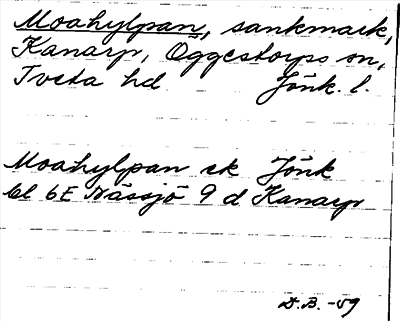 Moahylpan, sankmark,
Kanarp, Öggestorps sn,
Tveta hd. Jönk. l.
Moahylpan ek Jönk
bl 6E Nässjö 9 d Kanarp
D.B. -59